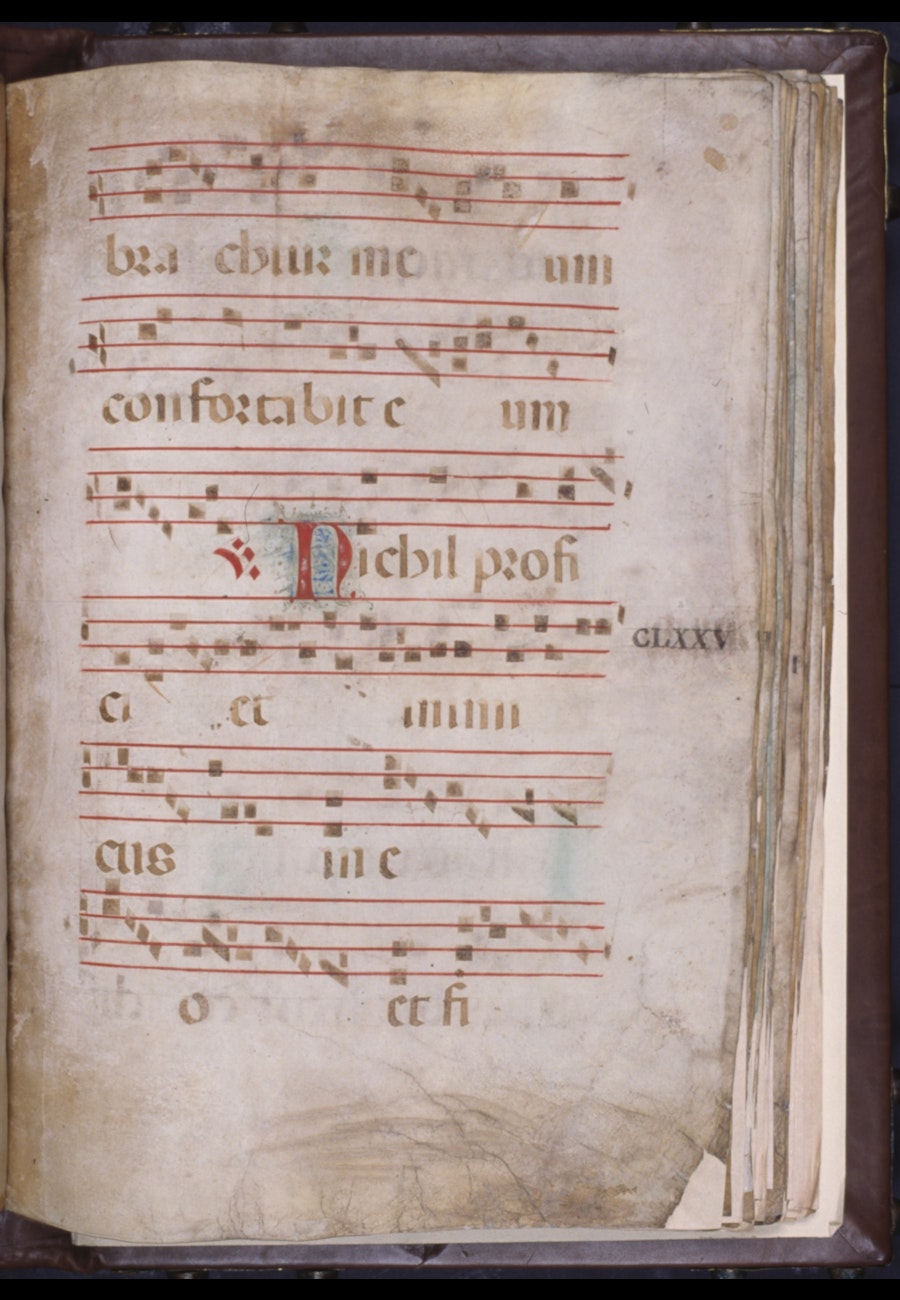 bra chiur me um
confortabit e um
℣ Nichil profi
CLXXV
ci et inimi
cus in e
o et fi